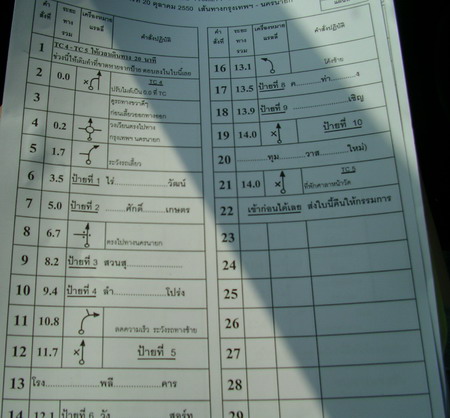 20 ตุลาคม 2550 เส้นทางกรุงเทพฯ - นครนายก
คำสั่งที่ ระยะทางรวม เครื่องหมายแรลลี่ คำสั่งปฏิบัติ
1 TC 4 - TC 5 ให้เวลาเดินทาง 20 นาที
ช่วงนี้ให้เติมคำที่ขาดหายจากป้าย ตอบลงในใบนี้เลย
2 0.0 TC 4
ปรับไมล์เป็น 0.3 ที่ TC
3 ดูระยะขวาดีๆ
ก่อนเลี้ยวออกทางออก
4 0.2 วงเวียนตรงไปทาง
กรุงเทพฯ นครนายก
5 1.7 ระวังรถเลี้ยว
6 3.5 ป้ายที่ 1 ไร่..................วัฒน์
7 5.0 ป้ายที่ 2 ........ศักดิ์.........เกษตร
8 6.7 ตรงไปทางนครนายก
9 8.2 ป้ายที่ 3 สวนสุ..................
10 9.4 ป้ายที่ 4 ลำ..................โปร่ง
11 10.8 ลดความเร็ว ระวังรถทางซ้าย
12 11.7 ป้ายที่ 5
13 โรง..................พลี..................คาร
14 12.1 ป้ายที่ 6 วัง..................สอร์ท
คำสั่งที่ ระยะทางรวม เครื่องหมายแรลลี่ คำสั่งปฏิบัติ
16 13.1
17 13.5 ป้ายที่ 8 ค............ท่า............4
18 13.9 ป้ายที่ 9 ..................เชิญ
19 14.0 ป้ายที่ 10
20 ............ทุม............วาส............ใหม่)
21 14.0 TC 5
ที่พักศาลาหน้าวัด
22 เข้าก่อนได้เลย ส่งใบนี้คืนให้กรรมการ
23
24
25
26
27
28
29